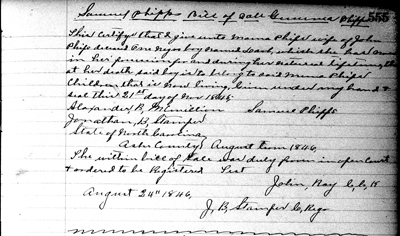 Samuel Phipps Bill of Sale Phipps 555
This certifys that I give unto wife of John
Phips deceased one negro boy named which she has
in her possession for and during her natural lifetime,
at her death said boy is to belong to said Phips
Children, that is now living, Given under my hand &
seal this 21st day of Nov 1845
Alexander B. McMillion Samuel Phipps
Jonathan, B, Stamper
State of North Carolina,
Ashe County August term 1846,
The within bill of sale was duly proven in open Court
& ordered to be Registered Test
John, Ray C,C,
August 24th 1846,
J, B, Stamper Co, Regr